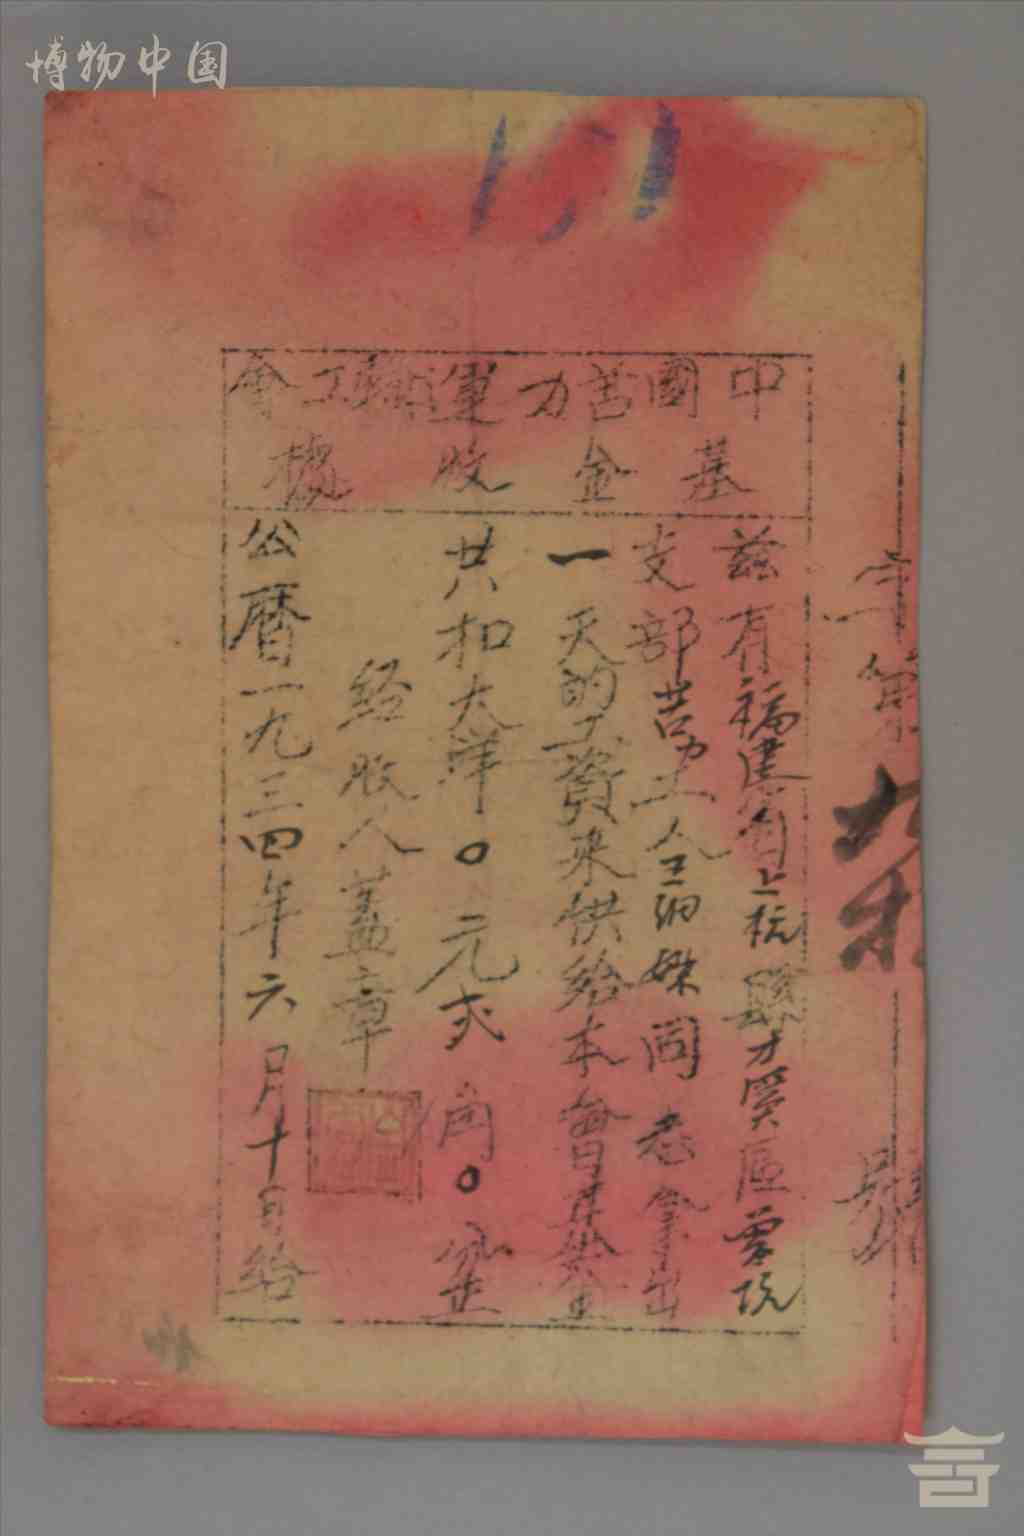 博物中国
中國苦力運輸工會
基金收據
兹有福建省上杭縣才溪區
支部苦力工人 同志拿出
一天的工資來供給本會日基金
共扣大洋〇元弍角〇分正
经收人蓋章
公曆一九三四年六月十日给
字第 號